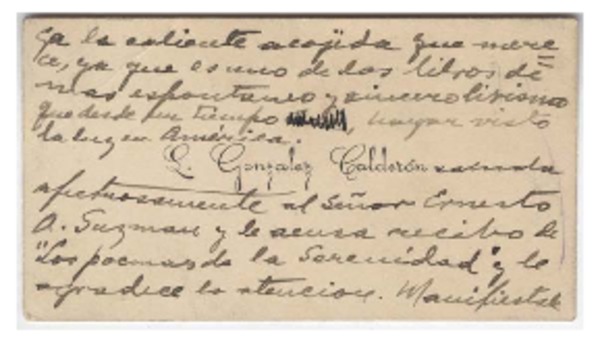 ga la caliente acojida que mere=
ce, ya que es uno de los libros de
mas espontaneo y sincero lirismo
que desde un tiempo hayan visto
la luz en América.
L. Gonzalez Calderón saluda
afectuosamente al Señor Ernesto
A. Guzman y le acusa recibo de
"Los poemas de la Serenidad" y le
agradece la atencion. Manifiestale